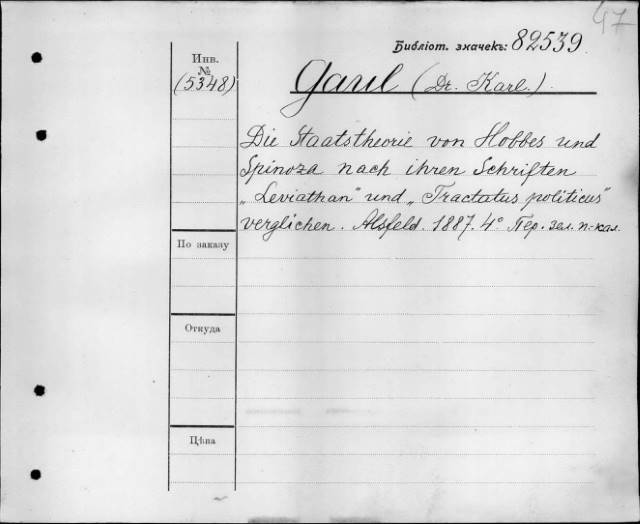 47
Библіот. значекъ: 82539
Инв.
№
(5348)
Gaul (Dr. Karl.)
Die Staatstheorie von Hobbes und
Spinoza nach ihren Schriften
„Leviathan" und „Tractatus politicus"
verglichen. Alsfeld. 1887. 4° Пер. зел. п-кал.
По заказу
Откуда
Цѣна